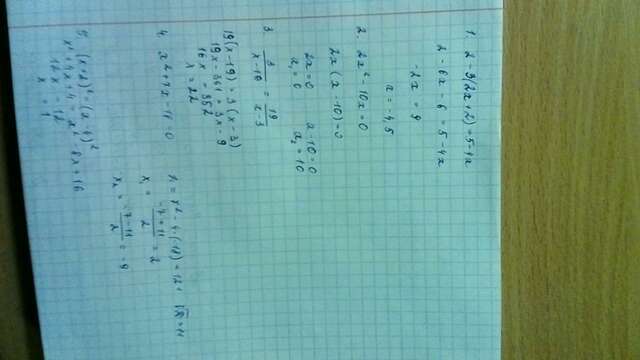 1. 2 - 3(2x+2) = 5-4x
2 - 6x - 6 = 5 - 4x
-2x = 9
x = -4,5
2. 2x² - 10x = 0
2x(x - 10) = 0
2x = 0 x - 10 = 0
x₁ = 0 x₂ = 10
3. 3/(x-19) = 19/(x-3)
19(x-19) = 3(x-3)
19x - 361 = 3x - 9
16x = 352
x = 22
4. x2 + 7x - 18 = 0
= 72 - 4·(-18) = 121 = 11
x₁ = (-7+11)/2 = 2
x₂ = (-7-11)/2 = -9
5. (x+2)² = (x-4)²
x² + 4x + 4 = x² 8x + 16
12x = 12
x = 1